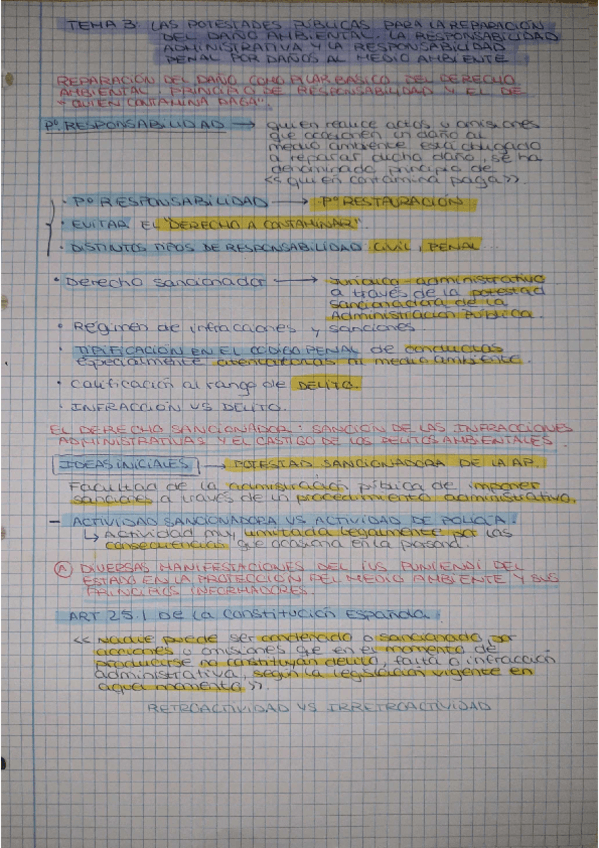 TEMA 3: LAS POTESTADES PÚBLICAS PARA LA REPARACIÓN
DEL DAÑO AMBIENTAL. LA RESPONSABILIDAD
ADMINISTRATIVA Y LA RESPONSABILIDAD
PENAL POR DAÑOS AL MEDIO AMBIENTE
REPARACIÓN DEL DAÑO COMO PILAR BÁSICO DEL DERECHO
AMBIENTAL. PRINCIPIO DE RESPONSABILIDAD Y EL DE
"QUIEN CONTAMINA PAGA".
Pº RESPONSABILIDAD → quien realice actos u omisiones
que ocasionen un daño al
medio ambiente está obligado
a reparar dicho daño, se ha
denominado principio de
<<quien contamina paga>>
· Pº RESPONSABILIDAD → Pº RESTAURACIÓN
· EVITAR EL "DERECHO A CONTAMINAR".
· DISTINTOS TIPOS DE RESPONSABILIDAD: CIVIL, PENAL...
· Derecho sancionador → Jurídico-administrativo
a través de la potestad
sancionadora de la
Administración Pública.
· Régimen de infracciones y sanciones.
· TIPIFICACIÓN EN EL CÓDIGO PENAL de conductas
especialmente atentatorias al medio ambiente.
· Calificación al rango de DELITO.
· INFRACCIÓN VS DELITO.
EL DERECHO SANCIONADOR: SANCIÓN DE LAS INFRACCIONES
ADMINISTRATIVAS Y EL CASTIGO DE LOS DELITOS AMBIENTALES.
IDEAS INICIALES → POTESTAD SANCIONADORA DE LA AP.
Facultad de la administración pública de imponer
sanciones a través de un procedimiento administrativo.
- ACTIVIDAD SANCIONADORA VS ACTIVIDAD DE POLICÍA.
↳ Actividad muy limitada legalmente por las
consecuencias que ocasiona en la
A DIVERSAS MANIFESTACIONES DEL IUS PUNIENDI DEL
ESTADO EN LA PROTECCIÓN DEL MEDIO AMBIENTE Y SUS
PRINCIPIOS INFORMADORES.
ART 25.1 De la Constitución Española.
<< Nadie puede ser condenado o sancionado por
acciones u omisiones que en el momento de
producirse no constituyan delito, falta o infracción
administrativa, según la legislación vigente en
aquel momento >>.
RETROACTIVIDAD VS IRRETROACTIVIDAD